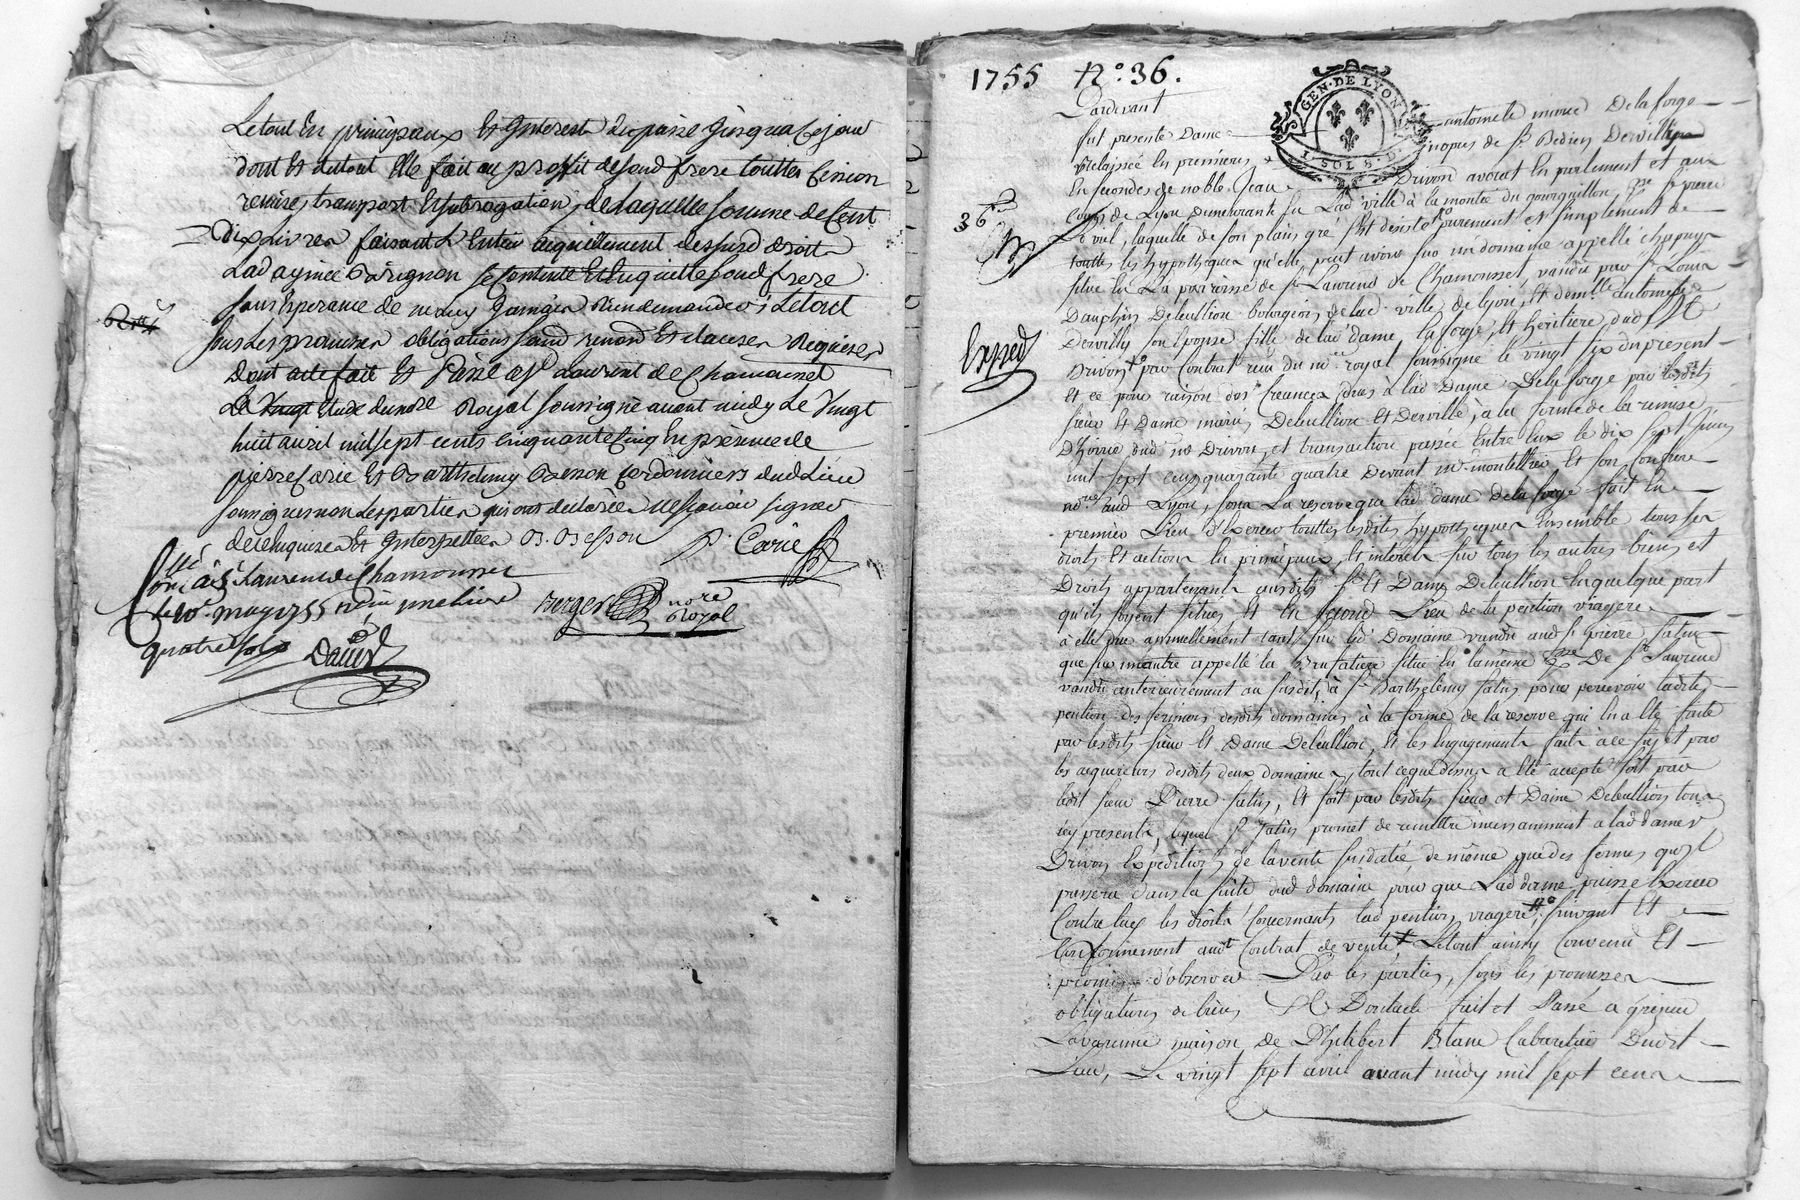 Letout En principaux Et Interest Dupassé Jusqua Cejour
dont Et dutout Elle fait au proffit desond frere touttes Cession
remises, transport Et subrogation, de laquelle somme de Cent
Dix livres faisant L'Entier acquittement dessusd droits
Lad aymée Bérignon se contente Et En quitte sond frere
sans Esperance de ny Jamais Rien demander; Letout
sous les promisses obligations sauds renond Et clauses Requises
Dont acte fait Et Passé a St Laurent de Chamousset
Etude dunore Royal soussigné avant midy Le Vingt
huit avril mil sept cents cinquante cinq En présence de
pierre Carié Et Barthelemy Besson Cordonniers dud Lieu
soussignés non les parties qui ont declaré ne sçavoir signer
de ce Enquises Et Interpellées B. Besson P. Carié
Collé
à St Laurent de Chamousset
le 10e may 1755 reçu
quatre sols
David
Berger nore
Royal
1755 No. 36.
GEN. DE LYON
1. SOL 8. D.
Pardevant
fut presente Dame antoinette Delaforge
Relaissée En premieres nopces de Sr Dervilly
En secondes de noble Jean Drivon avocat En parlement et aux
Cours de Lyon Demeurante En Lad ville à la montée du gourguillon, psse St pierre
Le viel, laquelle de son plain gré s'est desisté purement et simplement de
touttes les hypotheques qu'elle peut avoir sur un domaine appellé
situé En La parroisse de St Laurend de Chamousset, vandu par Sr Louis
Dauphin Debullion bourgeois de lad ville de Lyon, Et demlle antoinette
Dervilly son Epouse fille de lad dame la forge, Et heritiere dud
36
Exped
Drivon par Contrat reçu du nore royal soussigné le vingt six du present
Et ce pour raison des Creances dues a lad Dame Dela forge par lesdits
sieur Et Dame mariés Debullion Et Dervilly, à la forme de la remise
D'hoirie dud Sr Drivon, et transaction passée Entre Eux le dix sept
mil sept Cens quarante quatre Devant me montellier Et son Confrere
nores aud Lyon, sous La reserve que lad dame Dela forge fait En
premier Lieu D'Exercer touttes lesdites hypotheques Ensemble tous ses
droits Et actions En principaux, Et interets sur tous les autres biens et
Droits appartenants ausdits Sr Et Dame Debullion En quelque part
qu'ils soyent situés, Et En second Lieu de la pention viagere
à elle due annuellement tant sur led Domaine vandu aud Sr pierre
que sur un autre appellé la situé En la meme psse De St Laurend
vandu anterieurement au susdit, à Sr Barthelemy pour percevoir ladite
pention des fermiers desdits domaines à la forme de la reserve qui En a Eté faite
par lesdits sieur Et Dame Debullion, Et les Engagements faits à ce sujet par
les acquereurs desdits deux domaines, tout ce que dessus a Eté accepté soit par
ledit sieur Pierre, Et soit par lesdits sieur et Dame Debullion tous
icy presents, lequel Sr promet de remettre incessamment a lad dame
Drivon Expedition de la vente susdatée de même que des fermes qu'il
passera dans la suite dud domaine pour que Lad dame puisse Exercer
Contre Eux les droits Concernants lad pention viagere, suivant Et
Conformement audt Contrat de vente Le tout ainsy Convenu Et
promis d'observer Par les parties, sous les promisses
obligations de biens Et Dont acte fait et Passé a
Lavarenne maison de Philibert Blanc Cabaretier Dudit
Lieu, Le vingt sept avril avant midy mil sept cens